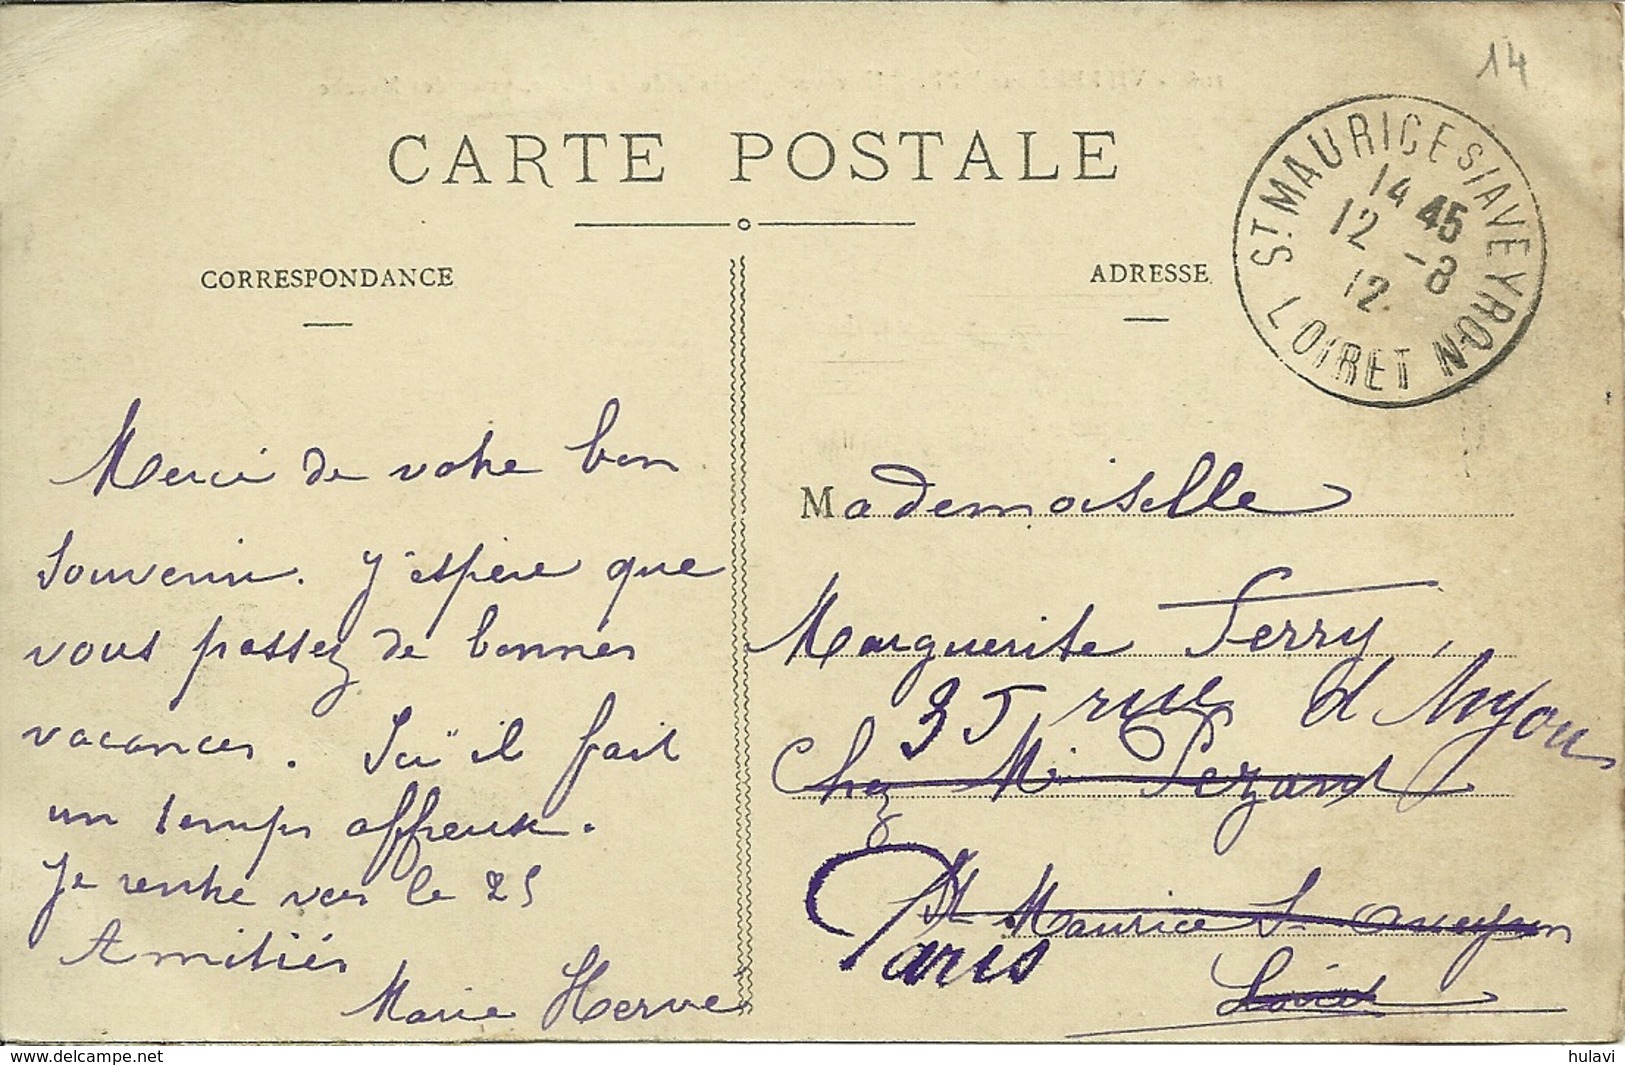 14
CARTE POSTALE
CORRESPONDANCE
ADRESSE
ST. MAURICE S/AVEYRON
14 45
12 -8
12
LOIRET
Merci de votre bon
souvenir. J'espère que
vous passez de bonnes
vacances. Ici il fait
un temps affreux.
Je rentre vers le 25
Amitiés
Marie Herve
Mademoiselle
Marguerite Ferry
35 rue d'Anjou
Chez Mr Pezard
St Maurice S- aveyron
Paris
Loiret
delcampe.net
hulavi